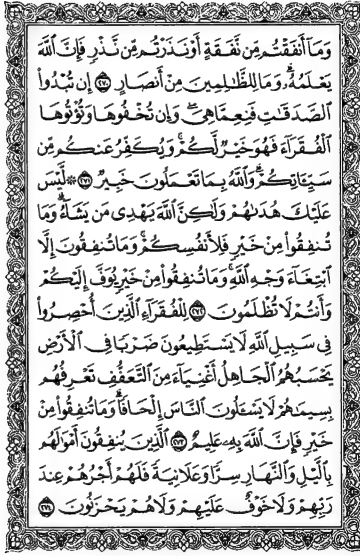 وَمَآ أَنفَقْتُم مِّن نَّفَقَةٍ أَوْ نَذَرْتُم مِّن نَّذْرٍ فَإِنَّ ٱللَّهَ
يَعْلَمُهُۥ وَمَا لِلظَّٰلِمِينَ مِنْ أَنصَارٍ ٢٧٠ إِن تُبْدُوا۟
ٱلصَّدَقَٰتِ فَنِعِمَّا هِىَ وَإِن تُخْفُوهَا وَتُؤْتُوهَا
ٱلْفُقَرَآءَ فَهُوَ خَيْرٌ لَّكُمْ وَيُكَفِّرُ عَنكُم مِّن
سَيِّـَٔاتِكُمْ وَٱللَّهُ بِمَا تَعْمَلُونَ خَبِيرٌ ٢٧١ ۞ لَّيْسَ
عَلَيْكَ هُدَىٰهُمْ وَلَٰكِنَّ ٱللَّهَ يَهْدِى مَن يَشَآءُ وَمَا
تُنفِقُوا۟ مِنْ خَيْرٍ فَلِأَنفُسِكُمْ وَمَا تُنفِقُونَ إِلَّا
ٱبْتِغَآءَ وَجْهِ ٱللَّهِ وَمَا تُنفِقُوا۟ مِنْ خَيْرٍ يُوَفَّ إِلَيْكُمْ
وَأَنتُمْ لَا تُظْلَمُونَ ٢٧٢ لِلْفُقَرَآءِ ٱلَّذِينَ أُحْصِرُوا۟
فِى سَبِيلِ ٱللَّهِ لَا يَسْتَطِيعُونَ ضَرْبًا فِى ٱلْأَرْضِ
يَحْسَبُهُمُ ٱلْجَاهِلُ أَغْنِيَآءَ مِنَ ٱلتَّعَفُّفِ تَعْرِفُهُم
بِسِيمَٰهُمْ لَا يَسْـَٔلُونَ ٱلنَّاسَ إِلْحَافًا وَمَا تُنفِقُوا۟ مِنْ
خَيْرٍ فَإِنَّ ٱللَّهَ بِهِۦ عَلِيمٌ ٢٧٣ ٱلَّذِينَ يُنفِقُونَ أَمْوَٰلَهُم
بِٱلَّيْلِ وَٱلنَّهَارِ سِرًّا وَعَلَانِيَةً فَلَهُمْ أَجْرُهُمْ عِندَ
رَبِّهِمْ وَلَا خَوْفٌ عَلَيْهِمْ وَلَا هُمْ يَحْزَنُونَ ٢٧٤